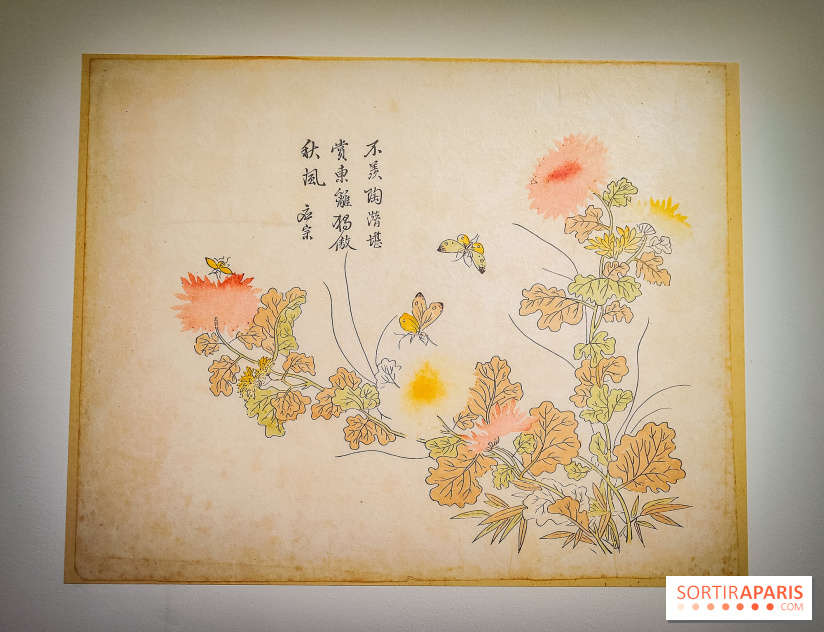 不羨陶潛堪
賞東籬獨傲
秋風
SORTIRAPARIS
.COM